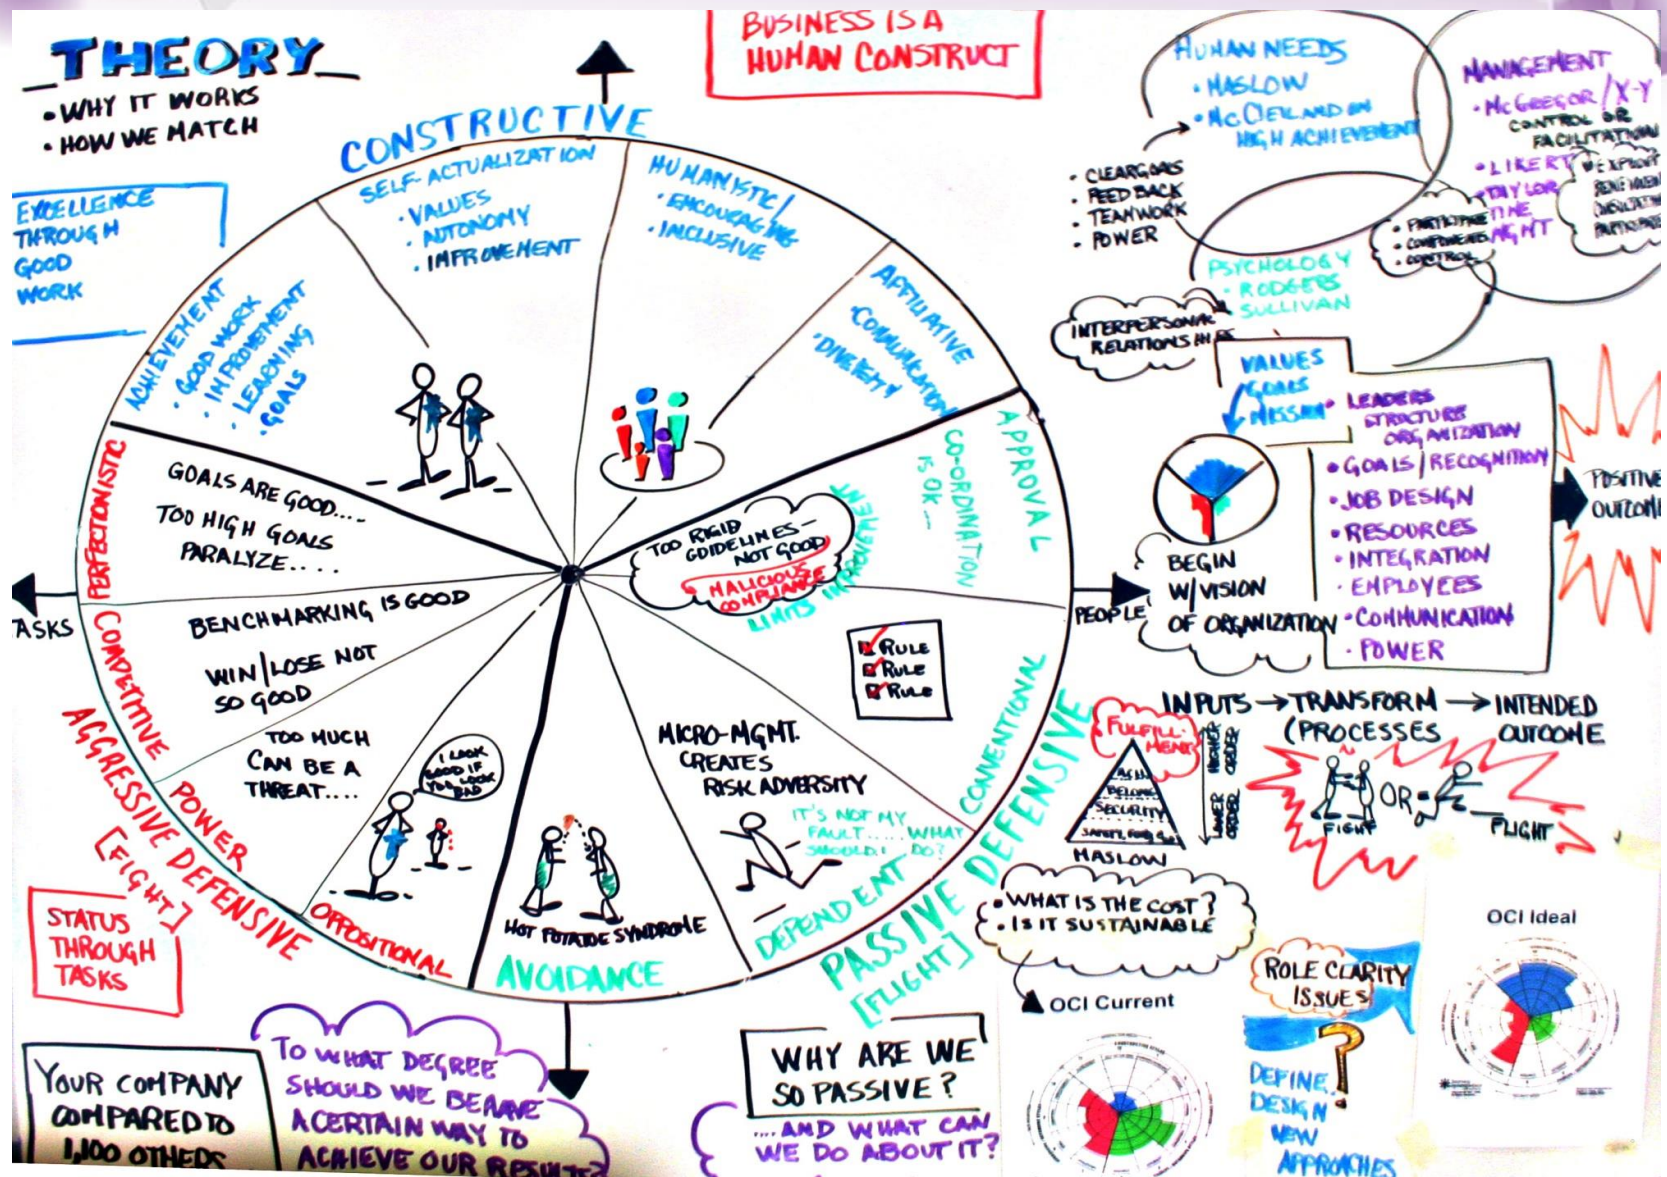 THEORY
• WHY IT WORKS
• HOW WE MATCH
BUSINESS IS A
HUMAN CONSTRUCT
EXCELLENCE
THROUGH
GOOD
WORK
CONSTRUCTIVE
SELF-ACTUALIZATION
• VALUES
• AUTONOMY
• IMPROVEMENT
HUMANISTIC/
• ENCOURAGING
• INCLUSIVE
AFFILIATIVE
• COMMUNICATION
ACHIEVEMENT
• GOOD WORK
• IMPROVEMENT
• LEARNING
• GOALS
PERFECTIONISTIC
GOALS ARE GOOD....
TOO HIGH GOALS
PARALYZE....
COMPETITIVE
BENCHMARKING IS GOOD
WIN/LOSE NOT
SO GOOD
POWER
TOO MUCH
CAN BE A
THREAT....
I LOOK
GOOD IF
YOU LOOK
BAD
OPPOSITIONAL
AGGRESSIVE DEFENSIVE
[FIGHT]
APPROVAL
CO-ORDINATION
IS OK...
TOO RIGID
GUIDELINES—
NOT GOOD
MALICIOUS
COMPLIANCE
LIMITS IMPROVEMENT
RULE
RULE
RULE
CONVENTIONAL
MICRO-MGMT.
CREATES
RISK ADVERSITY
IT'S NOT MY
FAULT.....WHAT
SHOULD I DO?
DEPENDENT
HOT POTATOE SYNDROME
AVOIDANCE
PASSIVE DEFENSIVE
[FLIGHT]
TASKS
PEOPLE
STATUS
THROUGH
TASKS
YOUR COMPANY
COMPARED TO
1,100 OTHERS
TO WHAT DEGREE
SHOULD WE BEHAVE
A CERTAIN WAY TO
ACHIEVE OUR RESULTS?
WHY ARE WE
SO PASSIVE?
....AND WHAT CAN
WE DO ABOUT IT?
HUMAN NEEDS
• MASLOW
• McCLELLAND ON
HIGH ACHIEVEMENT
• CLEAR GOALS
• FEEDBACK
• TEAMWORK
• POWER
MANAGEMENT
• McGREGOR/X-Y
CONTROL OR
FACILITATION
• LIKERT
• TAYLOR
TIME
MGMT
• CONTROL
PSYCHOLOGY
• RODGERS
SULLIVAN
INTERPERSONAL
VALUES
GOALS
MISSION
• LEADERS
STRUCTURE
ORGANIZATION
• GOALS/RECOGNITION
• JOB DESIGN
• RESOURCES
• INTEGRATION
• EMPLOYEES
• COMMUNICATION
• POWER
BEGIN
W/VISION
OF ORGANIZATION
POSITIVE
OUTCOME
INPUTS → TRANSFORM → INTENDED
(PROCESSES OUTCOME
FULFILL-
MENT
SECURITY
HIGHER ORDER
LOWER ORDER
MASLOW
OR
FIGHT
FLIGHT
• WHAT IS THE COST?
• IS IT SUSTAINABLE
OCI Current
ROLE CLARITY
ISSUES
?
DEFINE.
DESIGN
NEW
APPROACHES
OCI Ideal